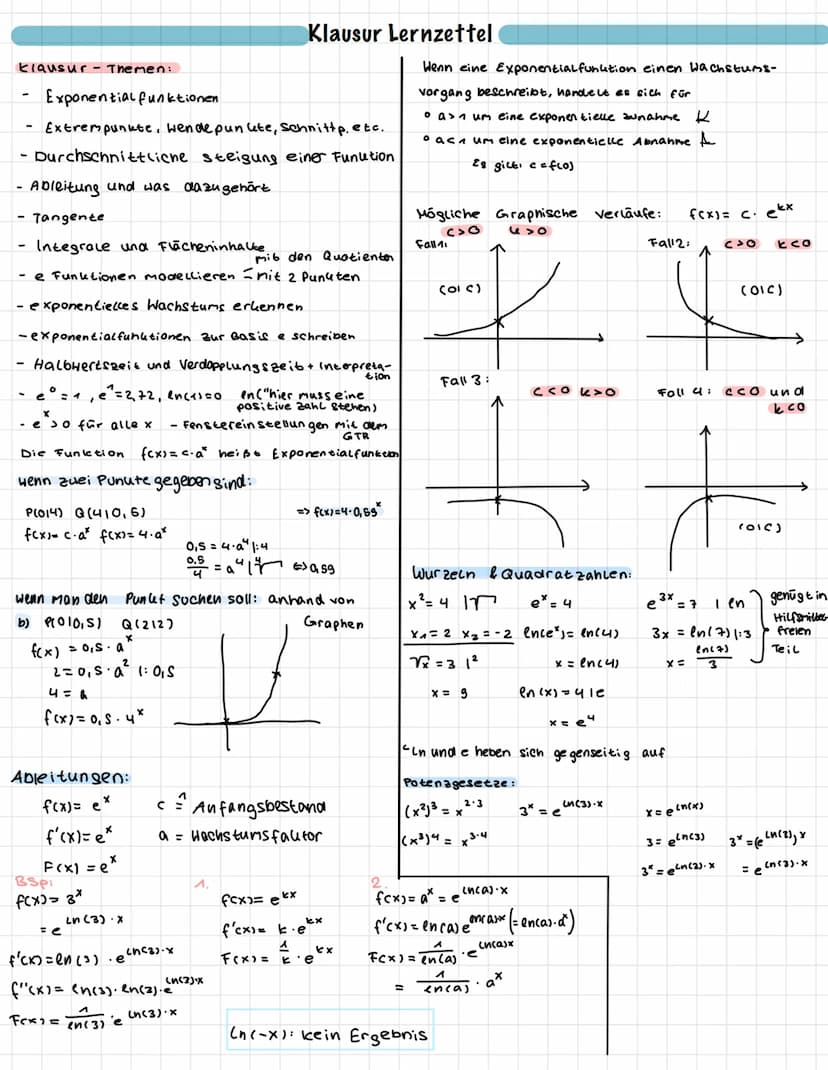 Klausur Lernzettel
Klausur - Themen:
- Exponentialfunktionen
- Extrempunkte, Wendepunkte, Schnittp. etc.
- Durchschnittliche Steigung einer Funktion
- Ableitung und was dazugehört
- Tangente
- Integrale und Flächeninhalte
- e Funktionen modellieren - mit 2 Punkten
mit den Quotienten
- exponentielles Wachstum erkennen
- exponentialfunktionen zur Basis e schreiben
- Halbwertszeit und Verdopplungszeit + Interpreta-
tion
- e⁰ = 1, e¹ = 2,72, ln(1) = 0 ln("hier muss eine
positive Zahl stehen)
- eˣ > 0 für alle x - Fenstereinstellungen mit dem
GTR
Die Funktion f(x) = c·aˣ heißt Exponentialfunktion
wenn zwei Punkte gegeben sind:
P(0|4) Q(4|0,5) => f(x)=4·0,59ˣ
f(x)= c·aˣ f(x)= 4·aˣ
0,5 = 4·a⁴ |:4
0.5/4 = a⁴ |⁴√ <=> 0,59
wenn man den Punkt suchen soll: anhand von
Graphen
b) P(0|0,5) Q(2|2)
f(x) = 0,5·aˣ
2 = 0,5·a² |:0,5
4 = a
f(x) = 0,5·4ˣ
Ableitungen:
f(x)= eˣ c ≙ Anfangsbestand
f'(x)= eˣ a = Wachstumsfaktor
F(x) = eˣ
Bsp:
f(x)= 3ˣ
= e^ln(3)·x
f'(x) = ln(3) · e^ln(3)·x
f''(x) = ln(3)·ln(3)·e^ln(3)·x
F(x) = 1/ln(3) · e^ln(3)·x
1.
f(x)= e^kx
f'(x)= k·e^kx
F(x) = 1/k · e^kx
2.
f(x)= aˣ = e^ln(a)·x
f'(x) = ln(a) e^ln(a)x (= ln(a)·aˣ)
F(x) = 1/ln(a) · e^ln(a)x
= 1/ln(a) · aˣ
ln(-x): kein Ergebnis
Wenn eine Exponentialfunktion einen Wachstums-
vorgang beschreibt, handelt es sich für
° a>1 um eine exponentielle Zunahme
° a<1 um eine exponentielle Abnahme
Es gilt: c = f(0)
Mögliche Graphische Verläufe: f(x)= c·e^kx
Fall 1: c>0 k>0
(0|c)
Fall 2: c>0 k<0
(0|c)
Fall 3:
c<0 k>0
Fall 4: c<0 und
k<0
(0|c)
Wurzeln & Quadratzahlen:
x² = 4 |√
x₁ = 2 x₂ = -2
√x = 3 |²
x = 9
eˣ = 4
ln(eˣ) = ln(4)
x = ln(4)
ln(x) = 4 |e
x = e⁴
e³ˣ = 7 | ln
3x = ln(7) |:3
x = ln(7)/3
genügt in
Hilfsmittel
freien
Teil
ln und e heben sich gegenseitig auf
Potenzgesetze:
(x²)³ = x^2·3
(x³)⁴ = x^3·4
3ˣ = e^ln(3)·x
x = e^ln(x)
3 = e^ln(3)
3ˣ = e^ln(3)·x
3ˣ = (e^ln(3))ˣ
= e^ln(3)·x